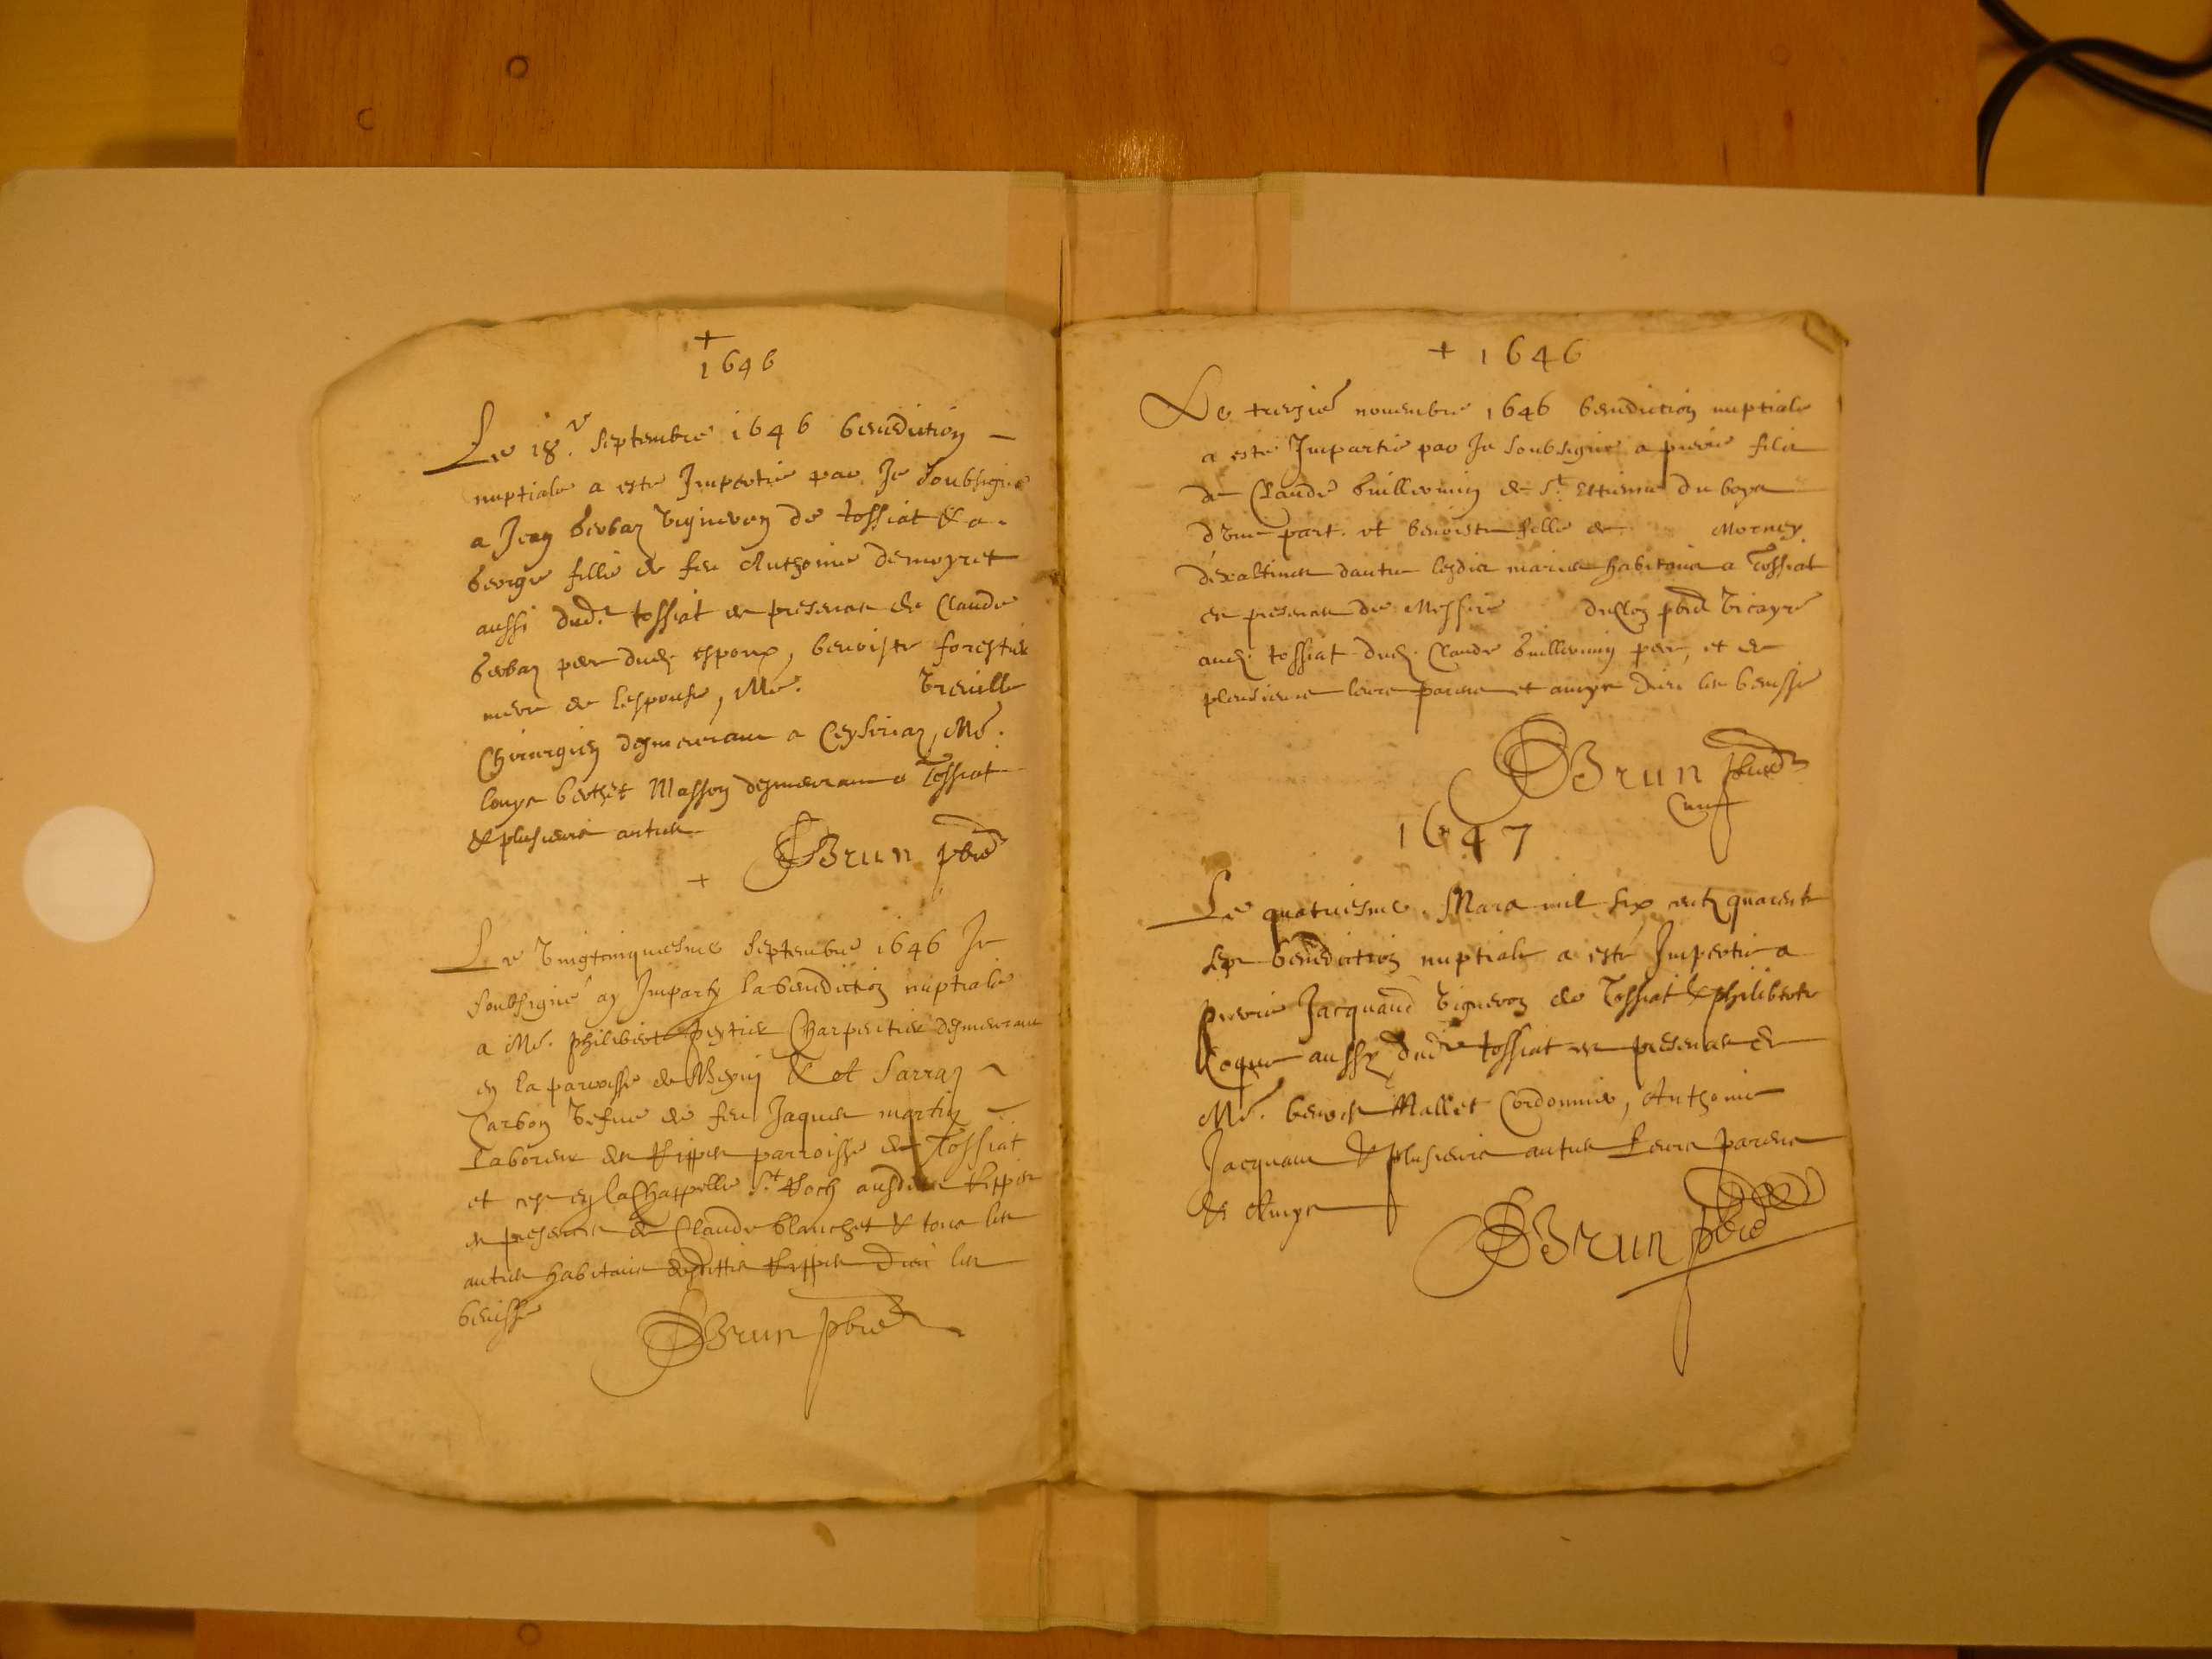 +
1646
Le 18.e septembre 1646 benediction
nuptiale a este Impertie par Je soubsigne
a Jean vigneron de tossiat & a
george fille de feu Anthoine demoyret
aussi dud. tossiat en presence de Claude
pere dud. espoux, benoiste forestier
mere de lespouse, Me.
Chirurgien demeurant a Ceyseriaz, Me.
Louys berthet Masson demeurant a Tossiat
& plusieurs autres
Brun pbre
+
Le vingtcinquiesme septembre 1646 Je
soubsigné ay Imparty la benediction nuptiale
a Me. philibert Charpentier demeurant
en la paroisse de & ot Sarraz
Carbon vefve de feu Jaques martin
Laboreur de Rippes parroisse de Tossiat
et ce en la Chappelle St. Roch ausdites Rippes
en presence de Claude blanchet & tous les
autres habitans desdittes Rippes Dieu les
benisse
Brun pbre
+ 1646
Le novembre 1646 benediction nuptiale
a este Impartie par Je soubsigne a pierre filz
de Claude Guillermin de St. Estienne du boys
d'une part. et benoiste fille de Morney
dautre lesdis maries habitans a Tossiat
en presence de Messire pbre vicayre
aud. tossiat dud. Claude Guillermin pere, et de
plusieurs leurs parens et amys Dieu les benisse
Brun pbre
Curé
1647
Le quatriesme Mars mil six centz quarente
sept benediction nuptiale a esté Impertie a
pierre Jacquand vigneron de Tossiat & philiberte
aussy dud. tossiat en presence de
Me. benoist Mallet Cordonnier, Anthoine
Jacquand & plusieurs autres Leurs parens
& Amys
Brun pbre